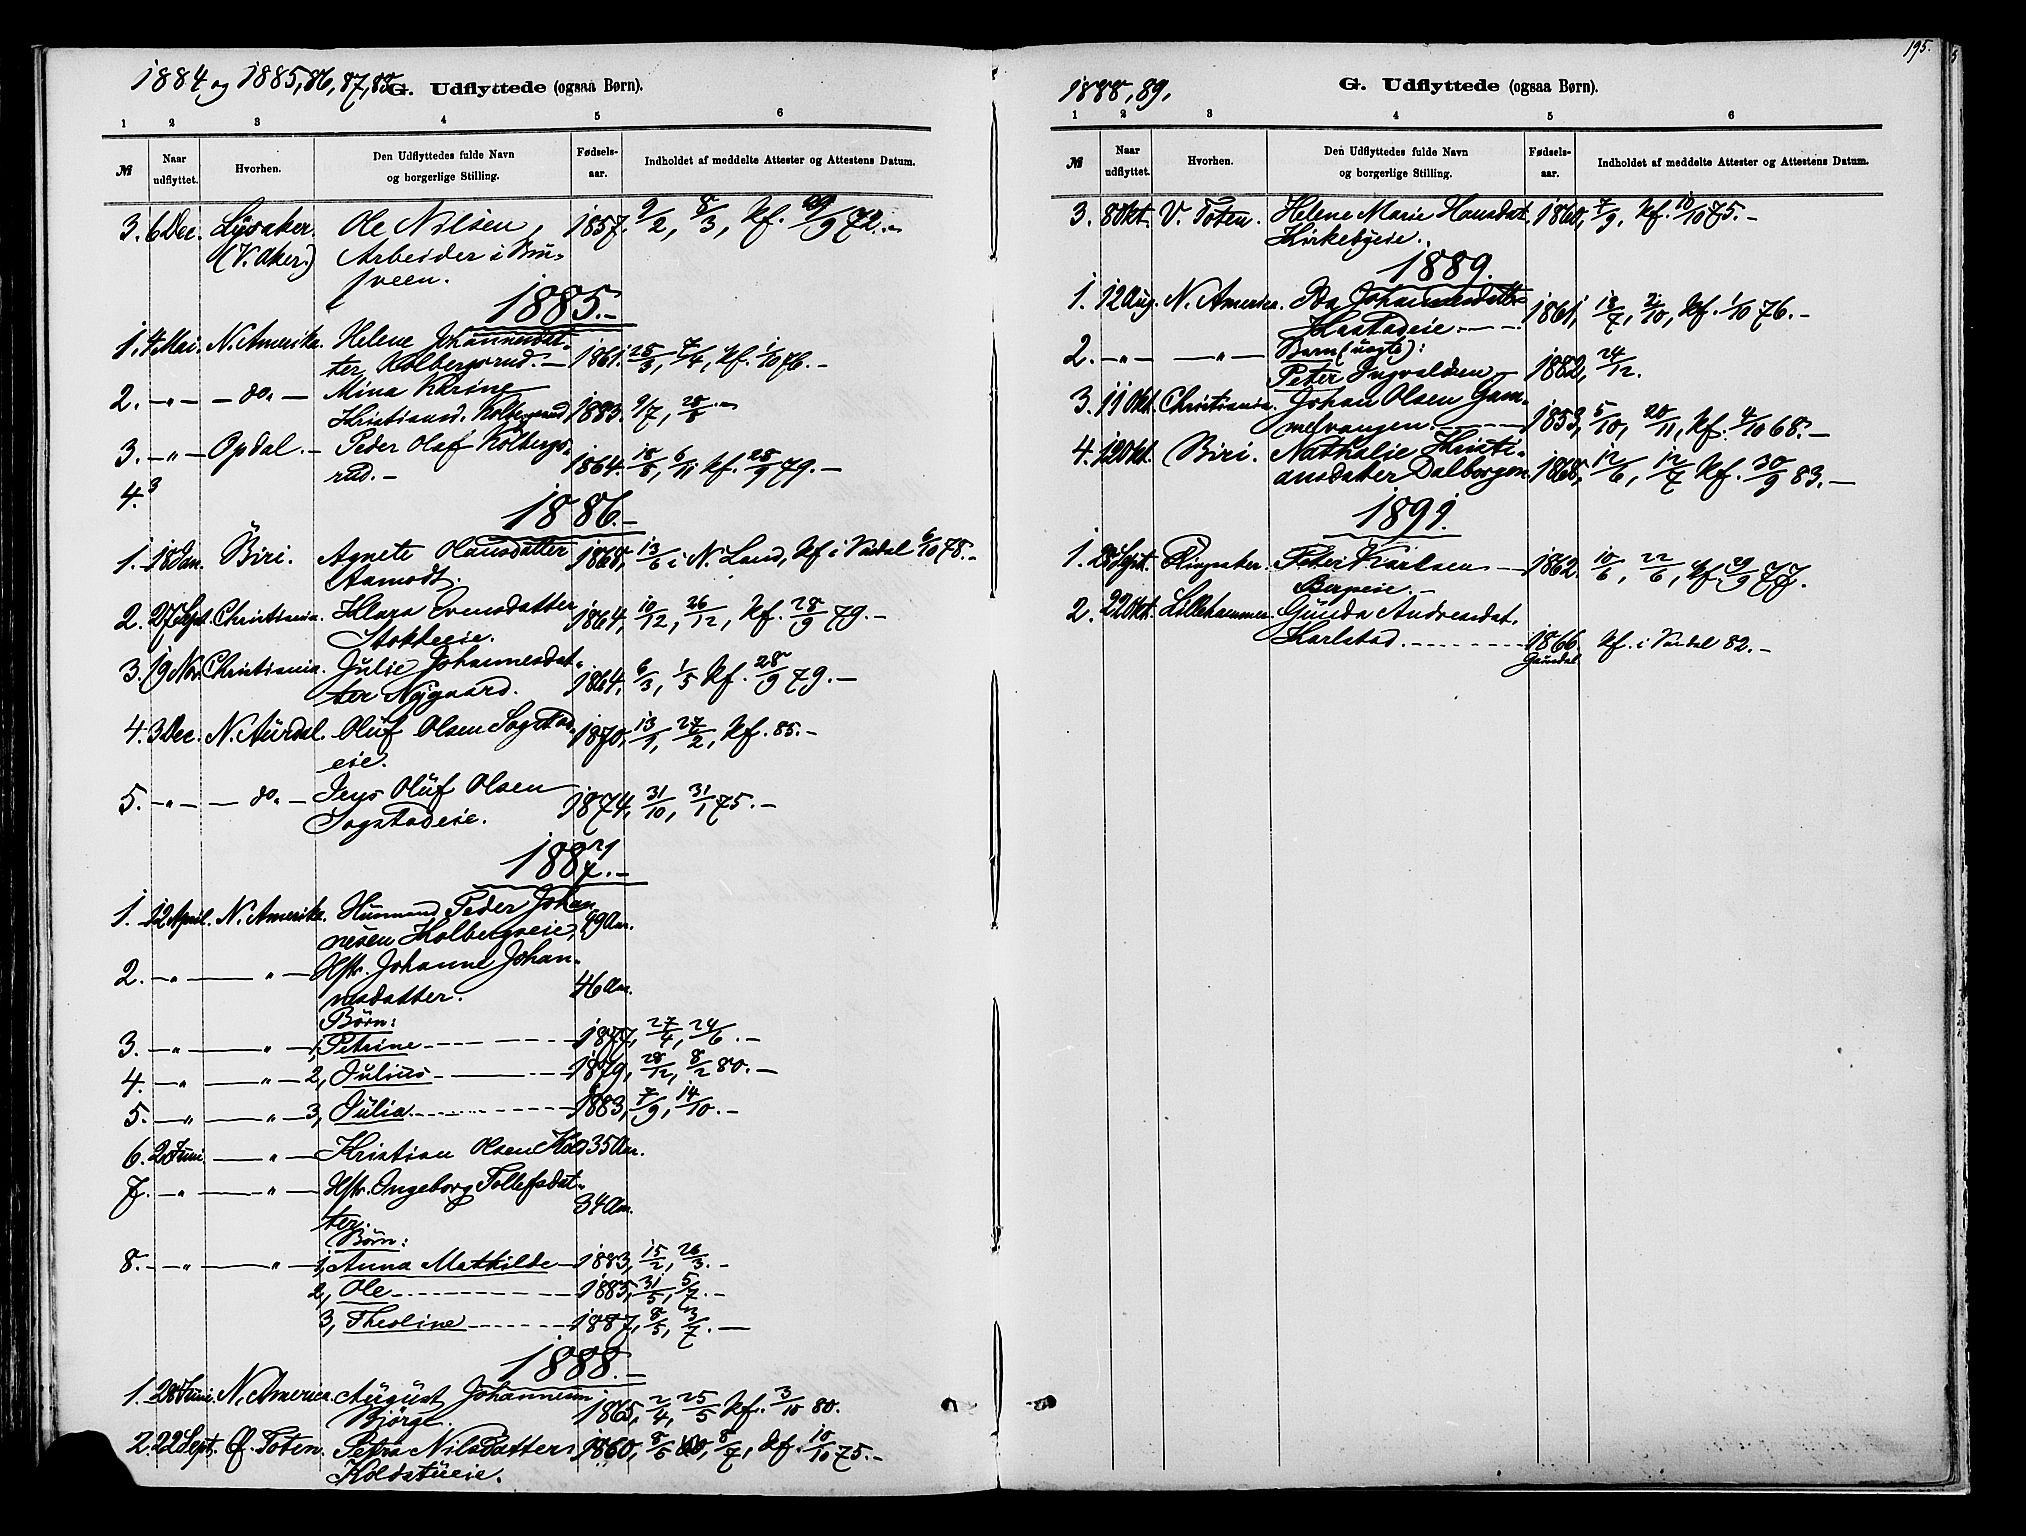 1884 og 1885, 86, 87, 88 G. Udflyttede (ogsaa Børn).
1 2 3 4 5 6
№ Naar udflyttet. Hvorhen. Den Udflyttedes fulde Navn og borgerlige Stilling. Fødsels-aar. Indholdet af meddelte Attester og Attestens Datum.
3. 6 Dec. Lysaker. Ole Nilsen, 1857. 9/2, 8/3, Kf. 29/9 72.-
(V. Aker.) Arbeider i
1885.-
1. 4 Mai. N. Amerika. Helene Johannesdat-
ter Kolbergsrud.- 1861. 25/3, 7/4, Kf. 1/10 76.-
2. -"- -do.- Mina Karine
Kristiansd. Kolbergsrud 1883. 9/7, 28/8.-
3. -"- Opdal.- Peder Olaf Kolbergs-
rud.- 1864. 18/5, 6/11, Kf. 28/9 79.-
4.
1886.-
1. 18 Jan. Biri. Agnete Olausdatter 1868, 13/6 i N. Land, Kf. i Vardal 6/10 78.-
Aamodt.
2. 27 Sept. Christiania. Klara Evensdatter 1864, 10/12, 26/12, Kf. 28/9 79.-
Stokkeeie.
3. 19 Nov. Christiania. Julie Johannesdat-
ter Nygaard. 1864, 6/3, 1/5 Kf. 28/9 79.-
4. 3 Dec. N. Aurdal. Oluf Olsen Sogstad-
eie. 1870, 13/1, 27/2, Kf. 85.-
5. -"- -do.- Jens Oluf Olsen
Sogstadeie. 1874, 31/10, 31/1 75.-
1887.-
1. 12 April. N. Amerika. Husmand Peder Johan-
nesen Kolbergseie, 49 Aar.
2. -"- -"- Hstr. Johanne Johan-
nesdatter. 46 Aar.
Børn:
3. -"- -"- 1, Petrine 1877, 27/4, 24/6.-
4. -"- -"- 2, Julius 1879, 28/12, 8/2 80.-
5. -"- -"- 3, Julia 1883, 7/9, 14/10.-
6. 2 Juni. -"- Kristian Olsen 35 Aar.
7. -"- -"- Hstr. Ingeborg Tollefsdat-
ter. 34 Aar.
Børn:
8. -"- -"- 1, Anna Mathilde 1883, 15/2, 26/3.-
2, Ole 1885, 31/5, 5/7.-
3, Theoline 1887, 8/5, 3/7.-
1888.-
1. 28 Juni. N. America. August Johannesen
Bjørge. 1865, 2/4, 25/5 Kf. 3/10 80.
2. 22 Sept. Ø. Toten. Petra Nilsdatter 1860, 8/5, 8/7, Kf. 10/10 75.-
Koldstueie.
195.
1888, 89, G. Udflyttede (ogsaa Børn).
1 2 3 4 5 6
№ Naar udflyttet. Hvorhen. Den Udflyttedes fulde Navn og borgerlige Stilling. Fødsels-aar. Indholdet af meddelte Attester og Attestens Datum.
3. 8 Okt. V. Toten. Helene Marie Hansdat. 1860, 7/9, Kf. 10/10 75.-
Kirkebyeie.
1889.
1. 12 Aug. N. America. Johannesdatter
1861, 18/7, 2/10, Kf. 1/10 76.-
2. -"- -"- Barn (uægte):
Peter Ingvaldsen 1882, 24/12.
3. 11 Okt. Christiania. Johan Olsen Gam-
melvangen. 1853, 5/10, 20/11, Kf. 4/10 68.-
4. 12 Okt. Biri. Nathalie Kristi-
ansdatter Dalborgen 1868, 12/6, 12/7 Kf. 30/9 83.-
1891.
1. 28 Sept. Ringsaker. Peter Karlsen 1862. 10/6, 22/6, Kf. 29/9 77.
Bergeie.
2. 22 Okt. Lillehammer. Gunda Andreasdat.
Karlstad. 1866 Kf. i Vardal 82.-
Gausdal